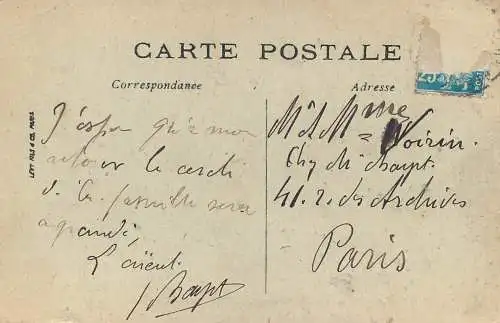 CARTE POSTALE
Correspondance
J'espère qu'à mon
retour le cercle
de la famille sera
agrandi
L'aïeul.
J Bapt
Adresse
Mr & Mme Voirin.
Chz Mr Bapt.
41. r. des Archives
Paris
LEVY FILS & CIE, PARIS